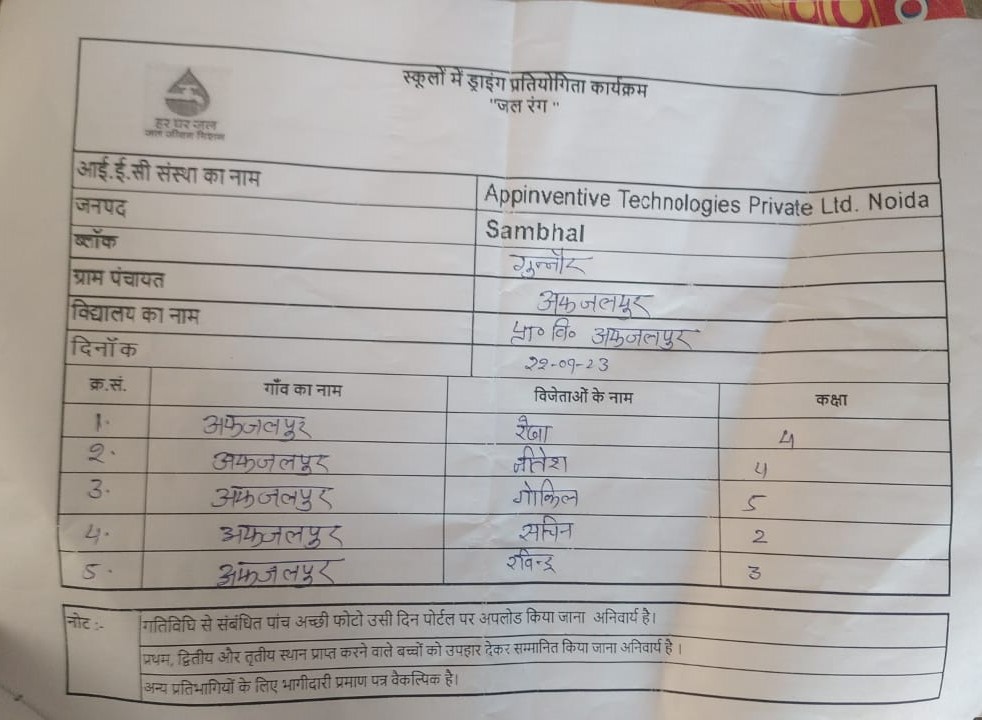 स्कूलों में ड्राइंग प्रतियोगिता कार्यक्रम
"जल रंग "
हर घर जल
जल जीवन मिशन
आई.ई.सी संस्था का नाम Appinventive Technologies Private Ltd. Noida
जनपद Sambhal
ब्लॉक गुन्नौर
ग्राम पंचायत अफजलपुर
विद्यालय का नाम प्रा० वि० अफजलपुर
दिनॉक 22-09-23
क्र.सं. गाँव का नाम विजेताओं के नाम कक्षा
1. अफजलपुर रेखा 4
2. अफजलपुर नीतेश 4
3. अफजलपुर गोकिल 5
4. अफजलपुर सचिन 2
5. अफजलपुर रविन्द्र 3
नोट :- गतिविधि से संबंधित पांच अच्छी फोटो उसी दिन पोर्टल पर अपलोड किया जाना अनिवार्य है।
प्रथम, द्वितीय और तृतीय स्थान प्राप्त करने वाले बच्चों को उपहार देकर सम्मानित किया जाना अनिवार्य है ।
अन्य प्रतिभागियों के लिए भागीदारी प्रमाण पत्र वैकल्पिक है।